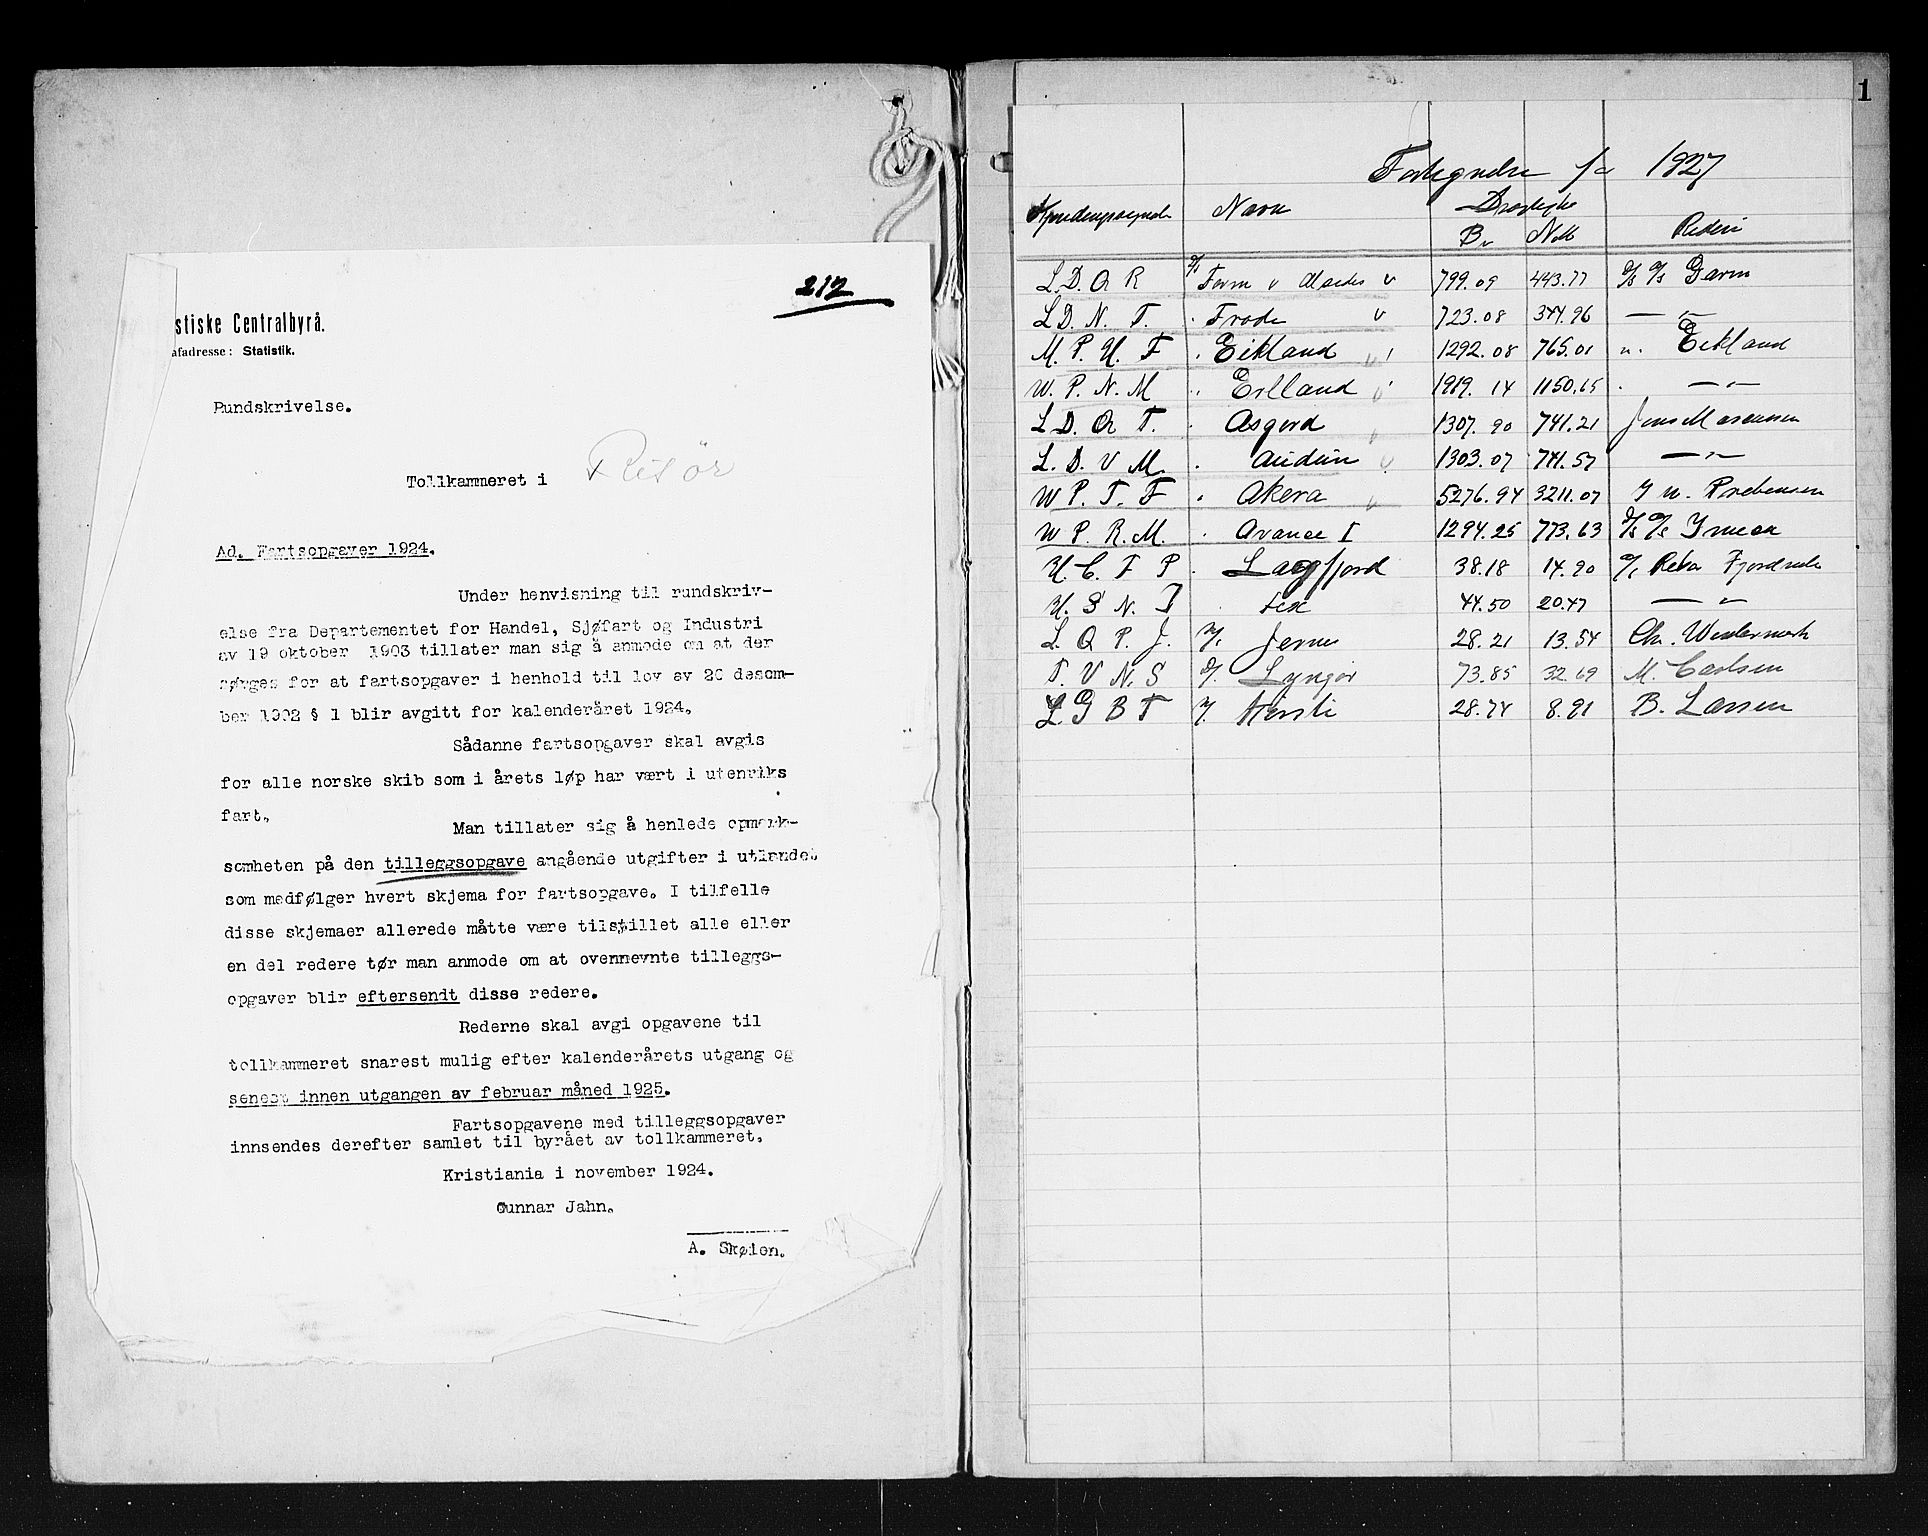 212
stiske Centralbyrå.
afadresse: Statistik.
Rundskrivelse.
Tollkammeret i Risör
Ad. Fartsopgaver 1924.
Under henvisning til rundskriv-
else fra Departementet for Handel, Sjøfart og Industri
av 19 oktober 1903 tillater man sig å anmode om at der
sørges for at fartsopgaver i henhold til lov av 20 desem-
ber 1902 § 1 blir avgitt for kalenderåret 1924.
Sådanne fartsopgaver skal avgis
for alle norske skib som i årets løp har vært i utenriks
fart.
Man tillater sig å henlede opmerk-
somheten på den tilleggsopgave angående utgifter i utlandet
som medfølger hvert skjema for fartsopgave. I tilfelle
disse skjemaer allerede måtte være tilstillet alle eller
en del redere tør man anmode om at ovennevnte tilleggs-
opgaver blir eftersendt disse redere.
Rederne skal avgi opgavene til
tollkammeret snarest mulig efter kalenderårets utgang og
senest innen utgangen av februar måned 1925.
Fartsopgavene med tilleggsopgaver
innsendes derefter samlet til byrået av tollkammeret.
Kristiania i november 1924.
Gunnar Jahn.
A. Skøien.
1
1927
Navn
Br Nett Rederi
L. D. Q R 799.09 443.77 Garm
L D. N. T. Frode 723.08 344.96 — " —
M. P. U. F Eikland 1292.08 765.01 Eikland
W. P. N. M Erlland 1919.14 1150.65 — " —
L D. Q T. Asgerd 1307.90 741.21 Jens Marcussen
L. D. V M. Audun 1303.07 741.57 — " —
W P. T. F Akera 5276.94 3211.07 J W. Prebensen
W P. R. M. Avance I 1294.25 773.63
U. C. F P Lagfjord 38.18 14.90
U. S N. J 44.50 20.47 — " —
L. Q P. J. 28.21 13.54 Chr. Westermark
T. V N. S Lyngör 73.85 32.69 M. Carlsen
L G B T Kersti 28.74 8.91 B. Larsen